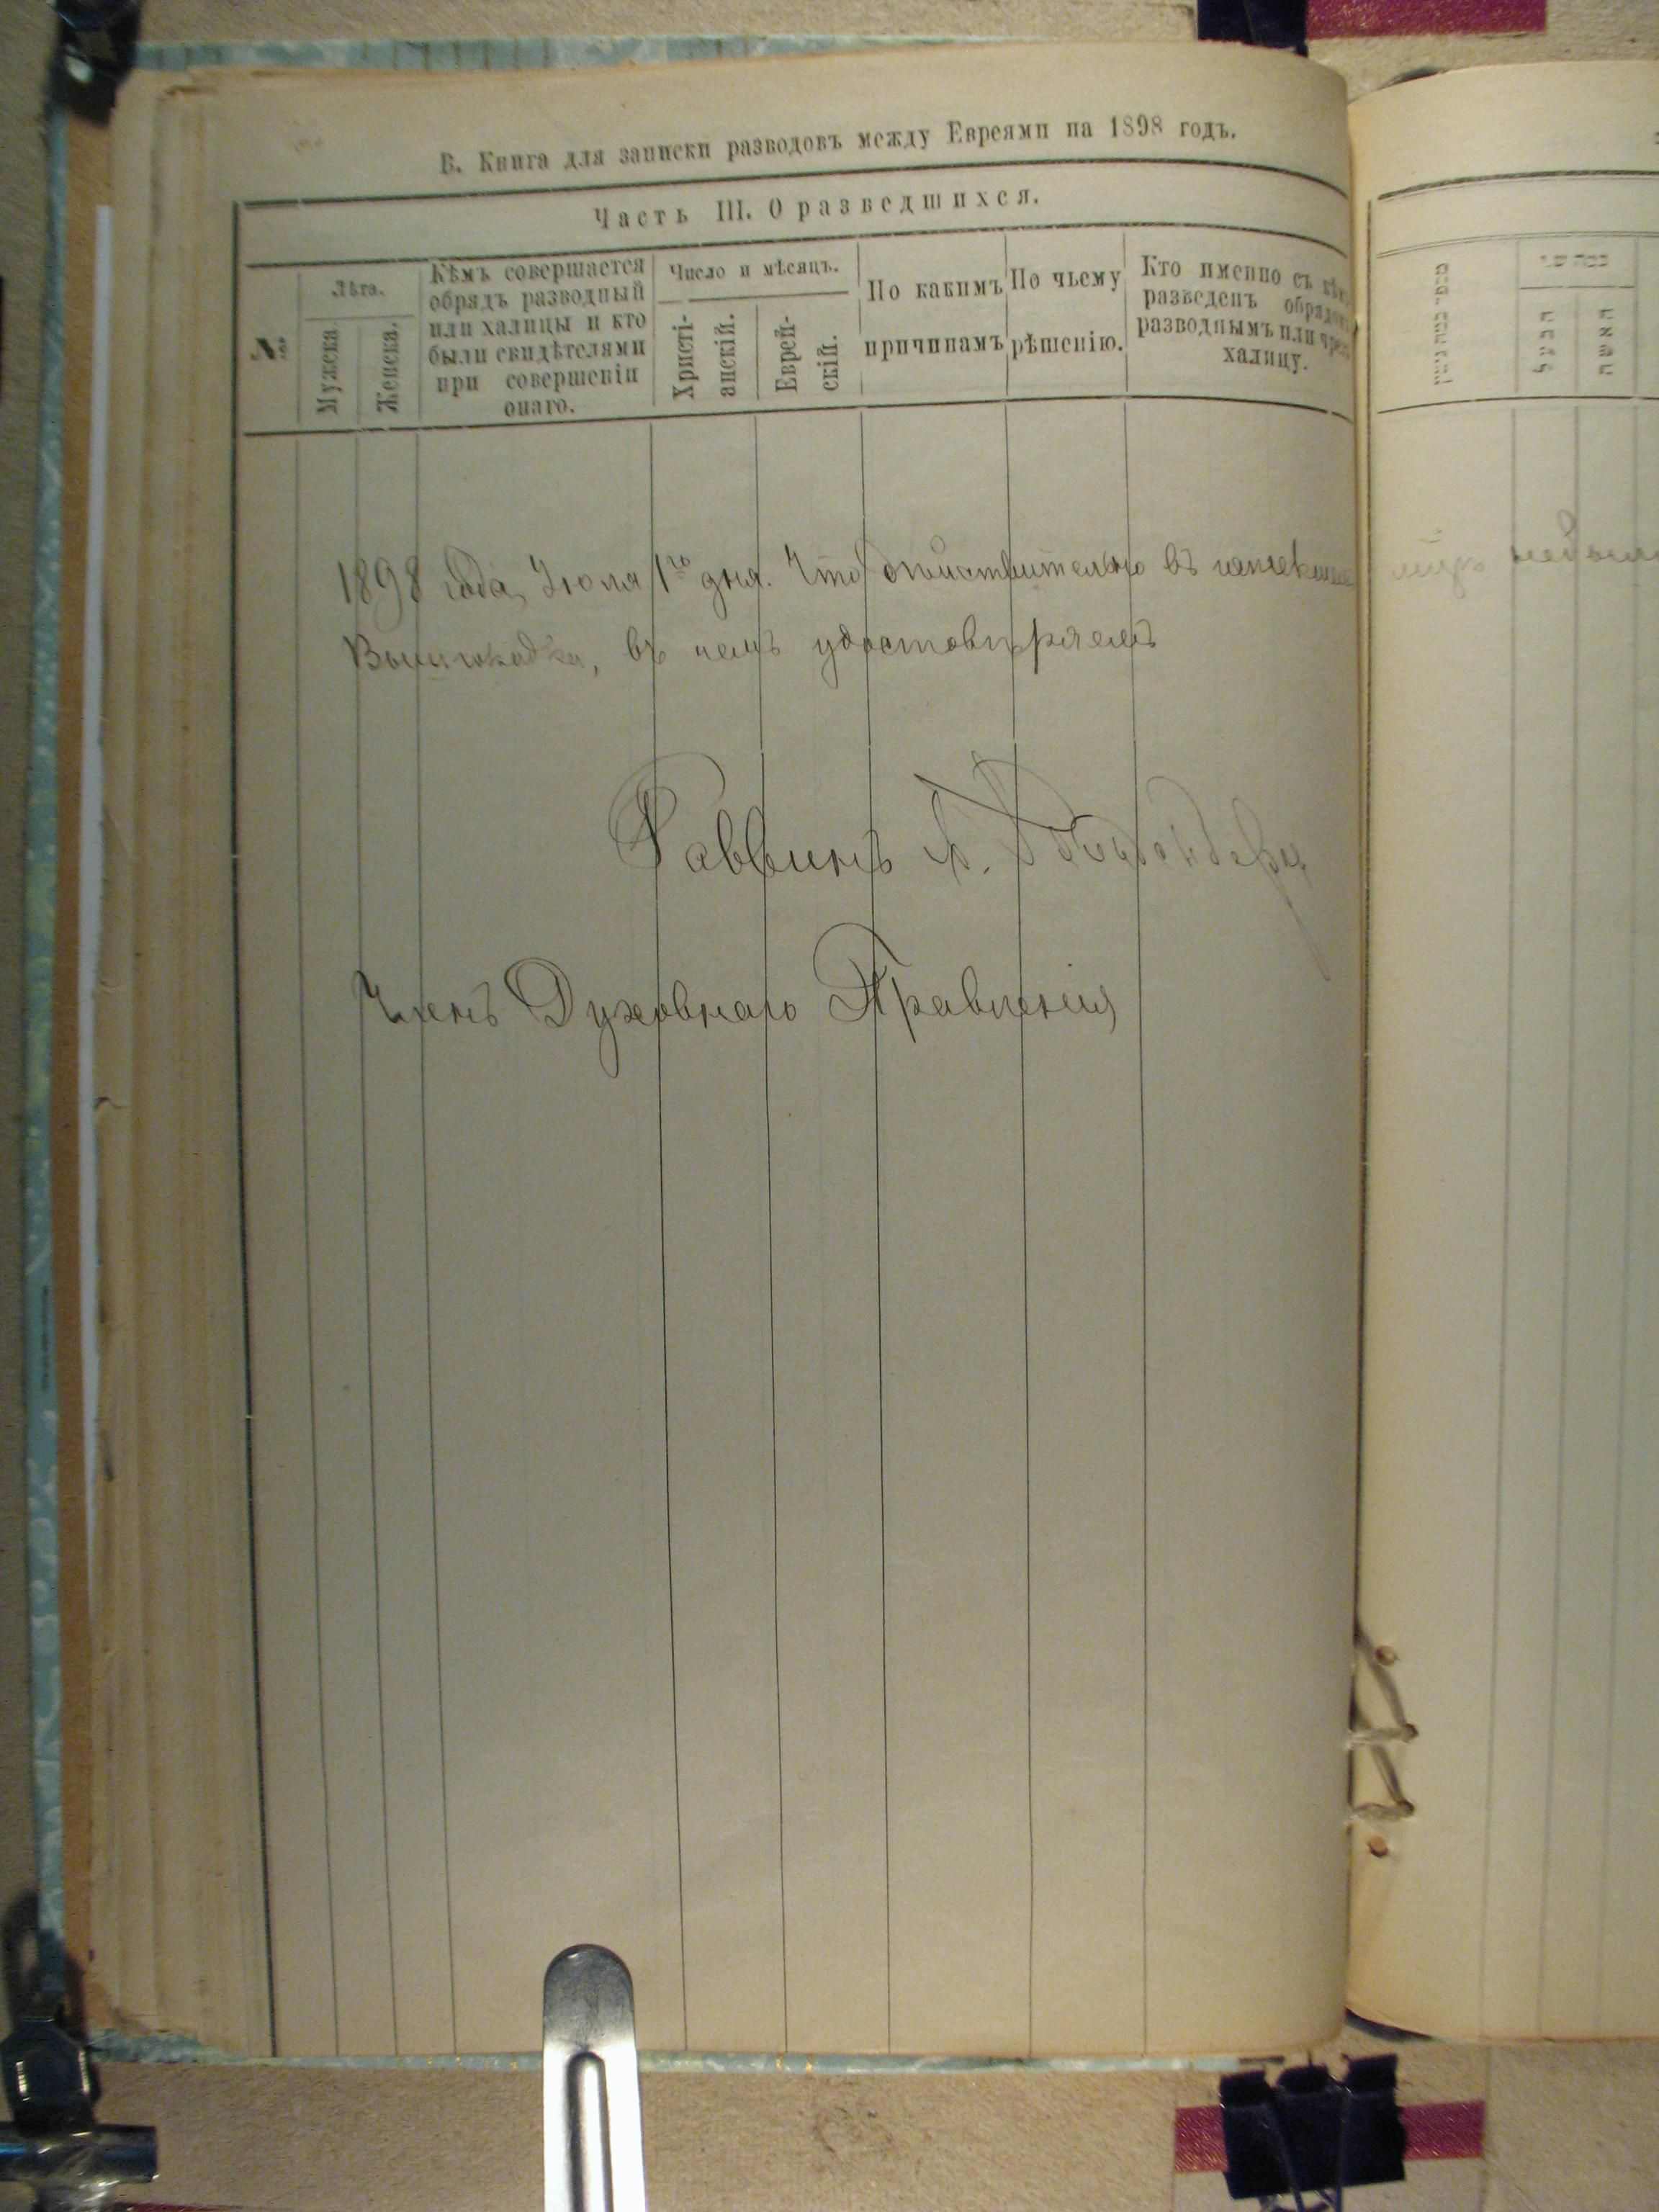 В. Книга для записки разводовъ между Евреями на 1898 годъ.
Часть III. О разведшихся.
№
Лѣта.
Мужска
Женска.
Кѣмъ совершается
обрядъ разводный
или халицы и кто
были свидѣтелями
при совершеніи
онаго.
Число и мѣсяцъ.
Христі-
анскій.
Еврей-
скій.
По какимъ
причинамъ
По чьему
рѣшенію.
Кто именно съ
разведенъ обрядомъ
разводнымъ или
халицу.
1898 года, Іюля 1го дня. Что дѣйствительно въ
въ чемъ удостовѣряемъ
Раввинъ
Членъ Духовнаго Правленія